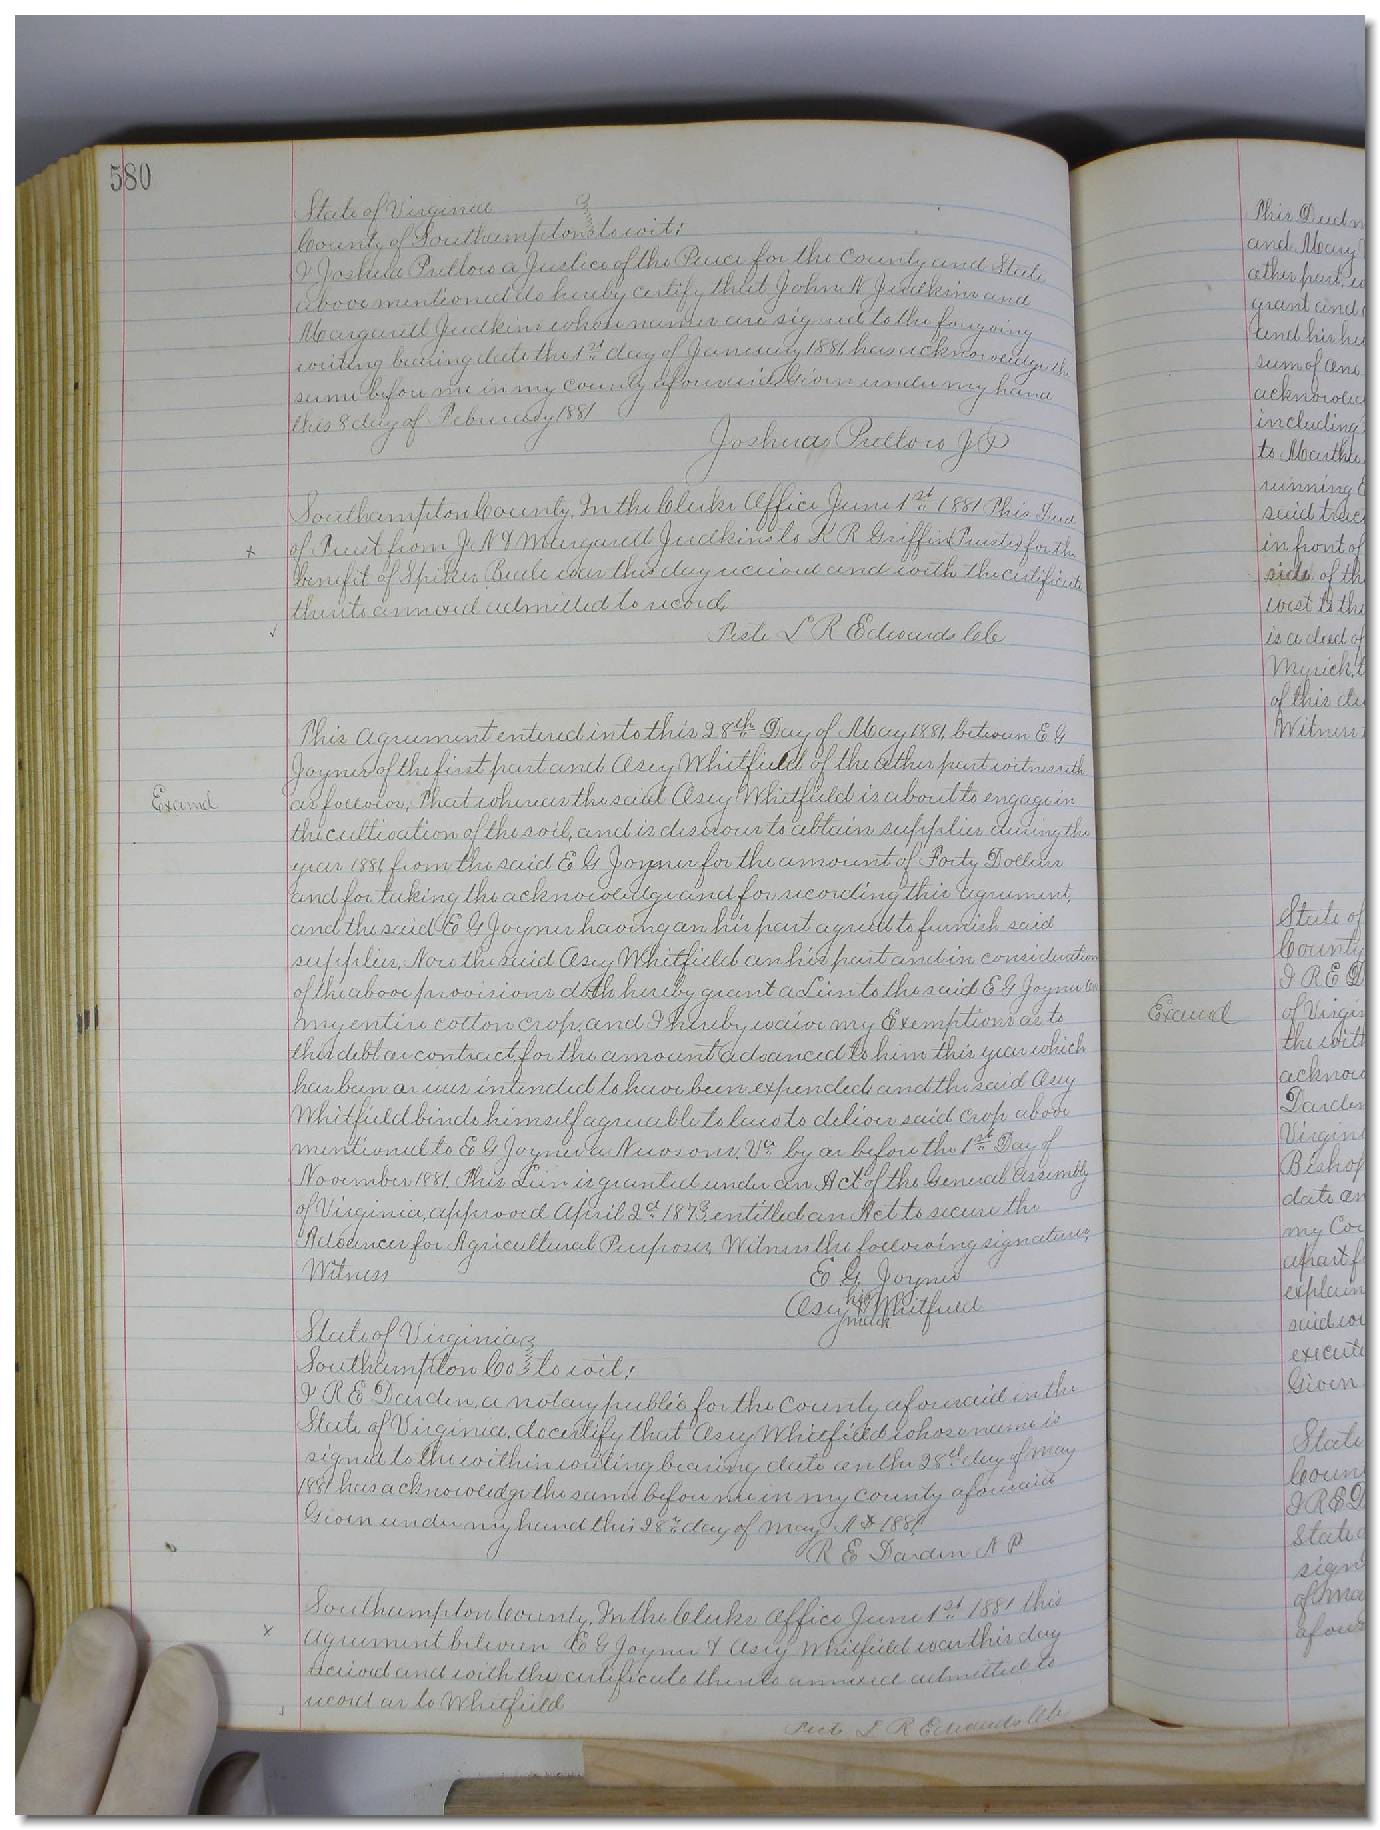 580
State of Virginia
County of Southampton to wit;
I Joshua Pretlow a Justice of the Peace for the County and State
above mentioned do hereby certify that John N Judkins and
Margarett Judkins whose names are signed to the forgoing
writing bearing date the 1st day of January 1881 has acknowledge the
same before me in my county aforesaid Given under my hand
this 8 day of February 1881
Joshua Pretlow J P
Southampton County, In the Clerks Office June 1st 1881 This Deed
x of Trust from J. N & Margarett Judkins to K R Griffin Trustee for the
benefit of Spiker Beale was this day received and with the certificate
thereto annexed admitted to record,
Teste L R Edwards Clc
This Agreement entered into this 28th Day of May 1881, between E G
Joyner of the first part and Asey Whitfield of the other part witnesseth
Examd
as follows; That whereas the said Asey Whitfield is about to engage in
the cultivation of the soil, and is desirous to obtain supplies during the
year 1881, from the said E G Joyner for the amount of Forty Dollars
and for taking the acknowledge and for recording this agreement,
and the said E G Joyner having on his part agreed to furnish said
supplies, Now the said Asey Whitfield on his part and in consideration
of the above provisions doth hereby grant a Lien to the said E G Joyner on
my entire cotton crop, and I hereby waive my Exemptions as to
this debt or contract, for the amount advanced to him this year which
has been or was intended to have been expended and the said Asey
Whitfield binds himself agreeable to law to deliver said crop above
mentioned to E G Joyner a Newsoms, Va by or before the 1st Day of
November 1881. This Lien is granted under an Act of the General Assembly
of Virginia, approved April 2d 1873, entitled an Act to secure the
Advances for Agricultural Purposes, Witness the following signatures,
Witness E G Joyner
his
Asey x Whitfield
mark
State of Virginia
Southampton Co to wit;
I R E Darden, a notary public for the County aforesaid in the
State of Virginia, do certify that Asey Whitfield whose name is
signed to the within writing bearing date on the 28th day of May
1881 has acknowledge the same before me in my county aforesaid
Given under my hand this 28th day of May A D 1881
R E Darden N P
Southampton County, In the Clerks Office June 1st 1881 this
x agreement between E G Joyner & Asey Whitfield was this day
received and with the certificate thereto annexed admitted to
record as to Whitfield
Teste L R Edwards Clc
This Deed
and Mary
other part,
grant and
and his
sum of one
acknow
including
to Martha
running
said
in front of
side of th
west to the
is a deed of
Myrick,
of this
Witness
State of
County
I R E D
Examd of Virgin
the with
acknow
Darden
Virgin
Bishop
date an
my Co
apart f
explain
said
execute
Given
State
Coun
I R E D
State
sign
of Ma